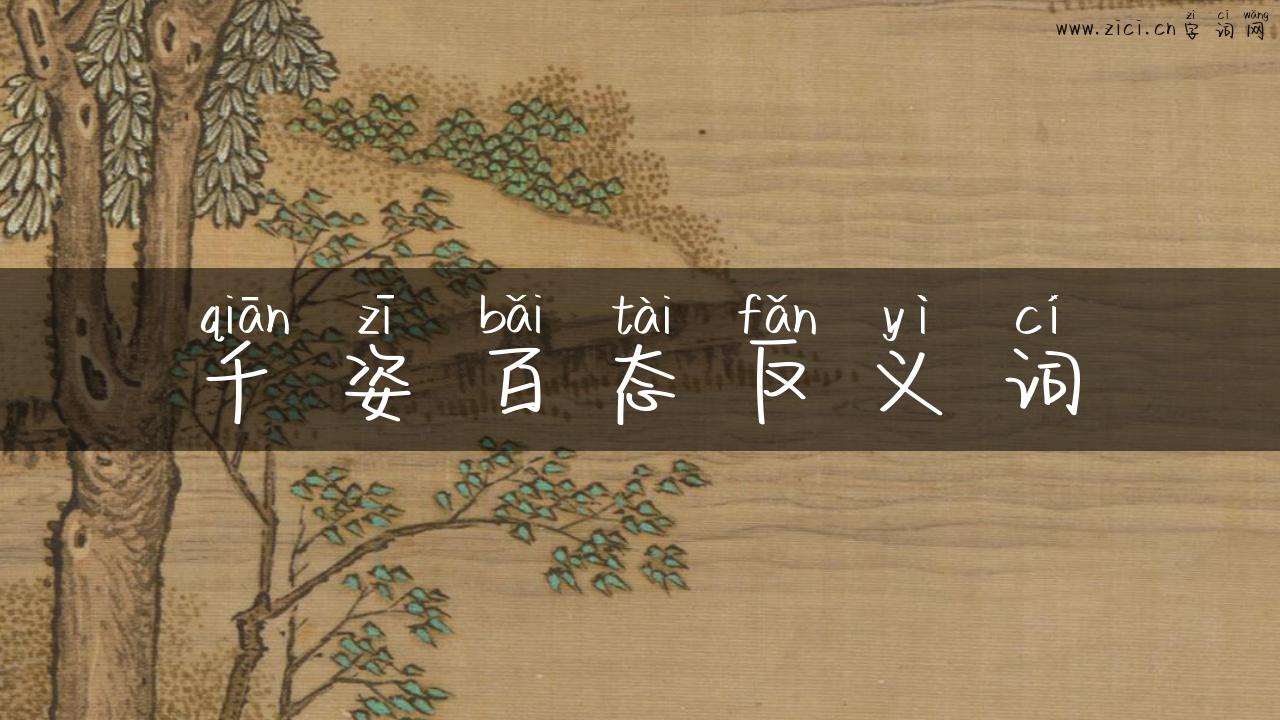 zì cí wǎng
www.zici.cn 字 词 网
qiān zī bǎi tài fǎn yì cí
千 姿 百 态 反 义 词